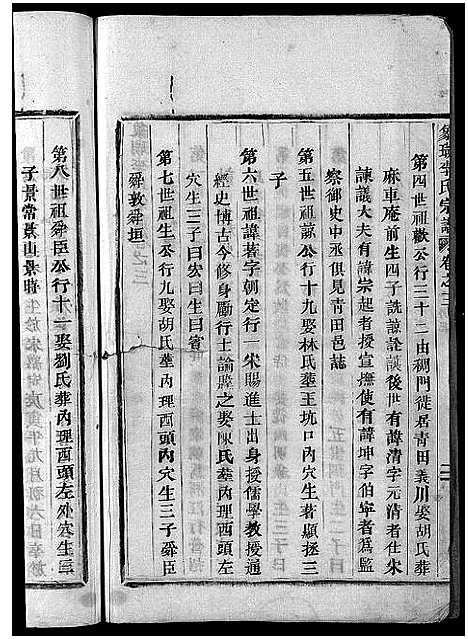 象珠李氏宗譜卷之三
第四世祖歡公行三十二由稠門徙居青田義川娶胡氏葬
麻車庵前生四子詵諒詮談後世有諱清字元清者仕宋
諫議大夫有諱宗起者授宣撫使有諱坤字伯寧者爲監
察御史中丞俱見青田邑誌
第五世祖諒公行十九娶林氏塟王坑口內穴生著顯拯三
子
第六世祖諱著字朝定行一宋賜進士出身授儒學教授通
經史博古今修身勵行士論韙之娶陳氏塟內理西頭左
穴生三子曰宏曰生曰賓
第七世祖生公行九娶胡氏塟內理西頭內穴生三子舜臣
舜敦舜垣
第八世祖舜臣公行十一娶劉氏葬內理西頭左外穴生三
子景常景山景時